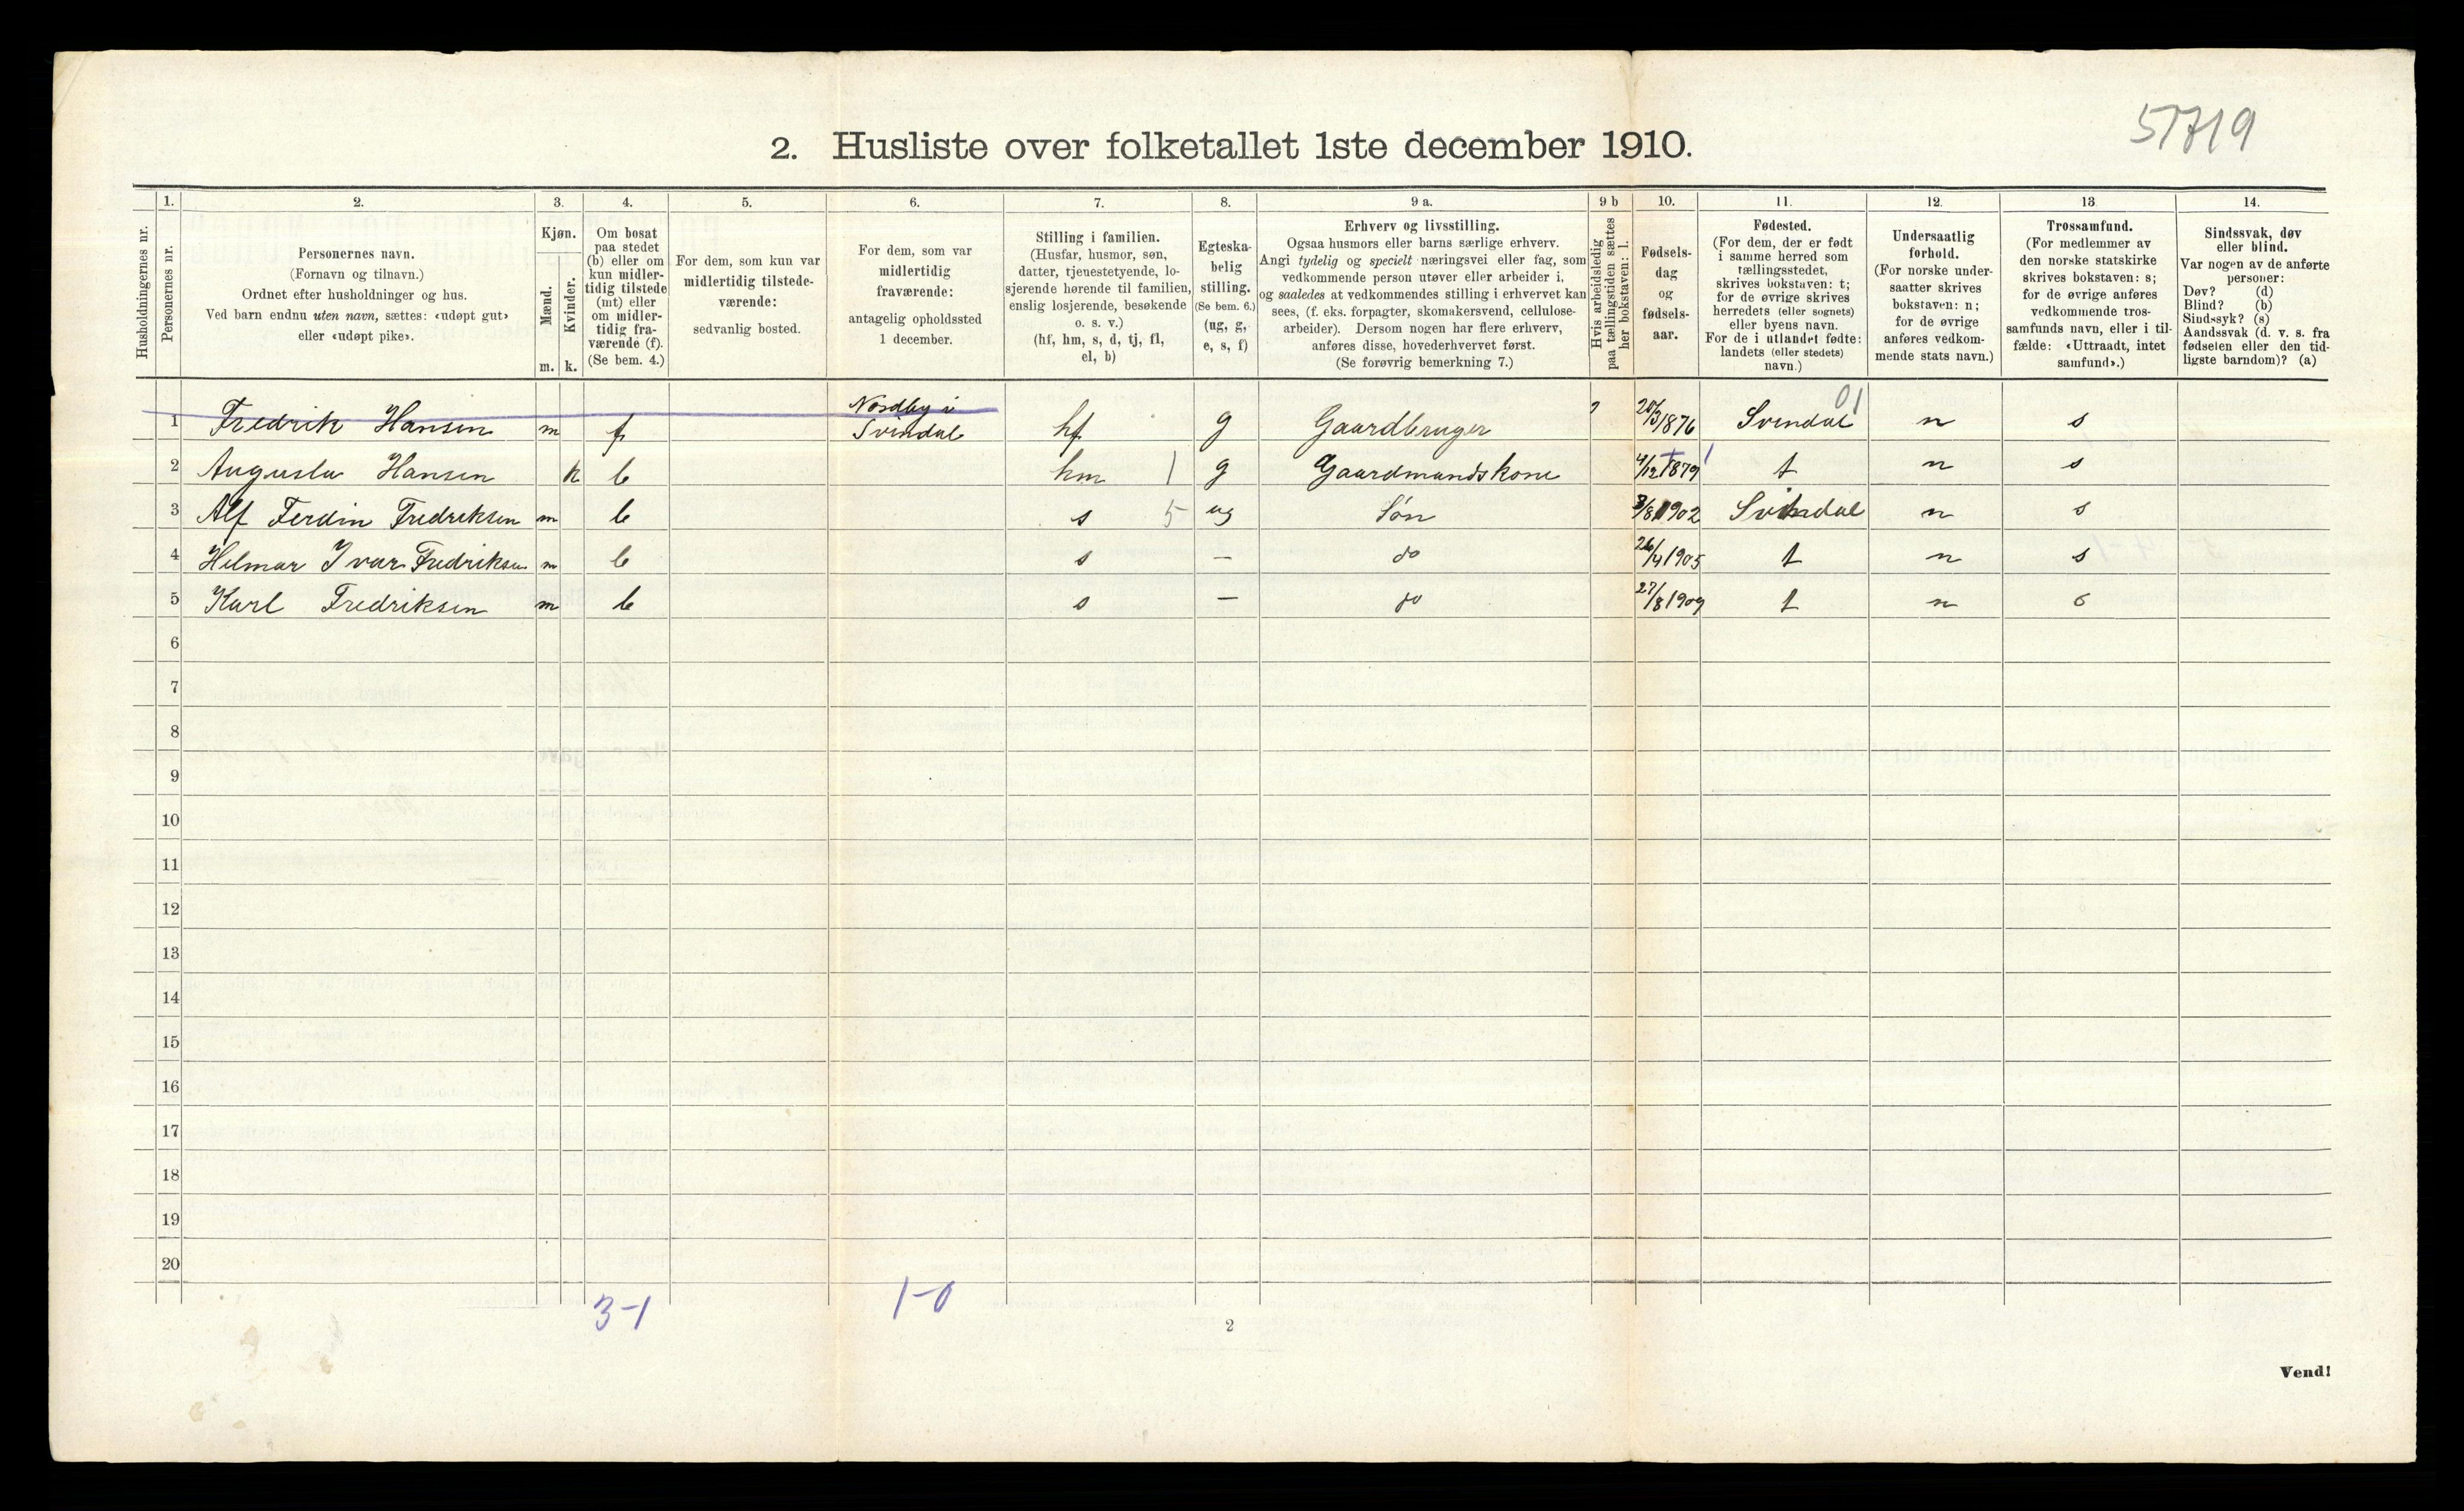 51719
2. Husliste over folketallet 1ste december 1910.
Husholdningernes nr.
1. 2. 3. 4. 5. 6. 7. 8. 9 a. 9 b 10. 11. 12. 13 14.
Personernes nr.
Personernes navn.
(Fornavn og tilnavn.)
Ordnet efter husholdninger og hus.
Ved barn endnu uten navn, sættes: «udøpt gut»
eller «udøpt pike».
Kjøn.
Mænd. m.
Kvinder. k.
Om bosat
paa stedet
(b) eller om
kun midler-
tidig tilstede
(mt) eller
om midler-
tidig fra-
værende (f).
(Se bem. 4.)
For dem, som kun var
midlertidig tilstede-
værende:
sedvanlig bosted.
For dem, som var
midlertidig
fraværende:
antagelig opholdssted
1 december.
Stilling i familien.
(Husfar, husmor, søn,
datter, tjenestetyende, lo-
sjerende hørende til familien,
enslig losjerende, besøkende
o. s. v.)
(hf, hm, s, d, tj, fl,
el, b)
Egteska-
belig
stilling.
(Se bem. 6.)
(ug, g,
e, s, f)
Erhverv og livsstilling.
Ogsaa husmors eller barns særlige erhverv.
Angi tydelig og specielt næringsvei eller fag, som
vedkommende person utøver eller arbeider i,
og saaledes at vedkommendes stilling i erhvervet kan
sees, (f. eks. forpagter, skomakersvend, cellulose-
arbeider). Dersom nogen har flere erhverv,
anføres disse, hovederhvervet først.
(Se forøvrig bemerkning 7.)
Hvis arbeidsledig
paa tællingstiden sættes
her bokstaven: l.
Fødsels-
dag
og
fødsels-
aar.
Fødested.
(For dem, der er født
i samme herred som
tællingsstedet,
skrives bokstaven: t;
for de øvrige skrives
herredets (eller sognets)
eller byens navn.
For de i utlandet fødte:
landets (eller stedets)
navn.)
Undersaatlig
forhold.
(For norske under-
saatter skrives
bokstaven: n;
for de øvrige
anføres vedkom-
mende stats navn.)
Trossamfund.
(For medlemmer av
den norske statskirke
skrives bokstaven: s;
for de øvrige anføres
vedkommende tros-
samfunds navn, eller i til-
fælde: «Uttraadt, intet
samfund».)
Sindssvak, døv
eller blind.
Var nogen av de anførte
personer:
Døv? (d)
Blind? (b)
Sindssyk? (s)
Aandssvak (d. v. s. fra
fødselen eller den tid-
ligste barndom)? (a)
1 Fredrik Hansen m f Nordby i Svendal hf g Gaardbruger 20/3 1876 Svendal 01 n s
2 Augusta Hansen k b hm 1 g Gaardmandskone 4/12 1879 t n s
3 Alf Ferdin Fredriksen m b s 5 ug Søn 3/8 1902 Svindal n s
4 Helmar Ivar Fredriksen m b s — do 26/4 1905 t n s
5 Karl Fredriksen m b s — do 27/8 1909 t n s
6
7
8
9
10
11
12
13
14
15
16
17
18
19
20
3-1 1-0
2
Vend!